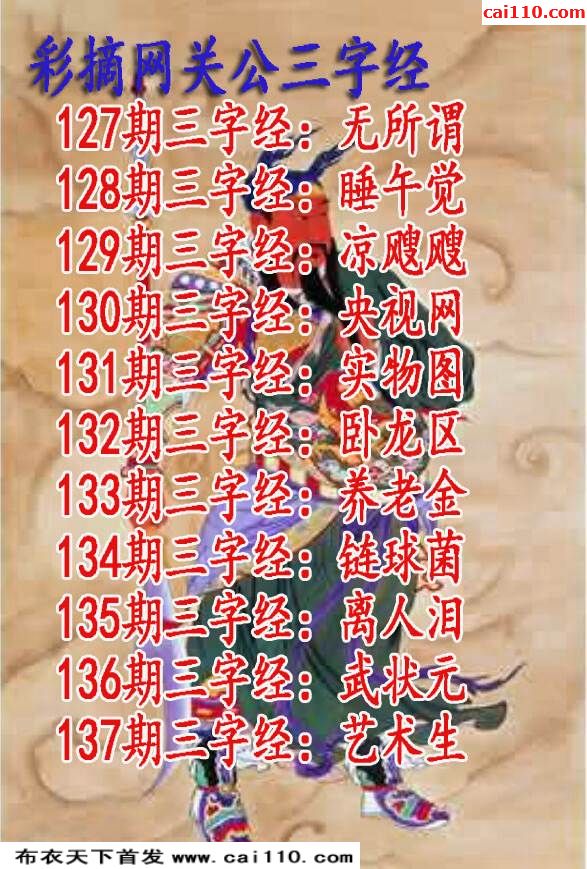 cai110.com
彩摘网关公三字经
127期三字经：无所谓
128期三字经：睡午觉
129期三字经：凉飕飕
130期三字经：央视网
131期三字经：实物图
132期三字经：卧龙区
133期三字经：养老金
134期三字经：链球菌
135期三字经：离人泪
136期三字经：武状元
137期三字经：艺术生
布衣天下首发 www.cai110.com